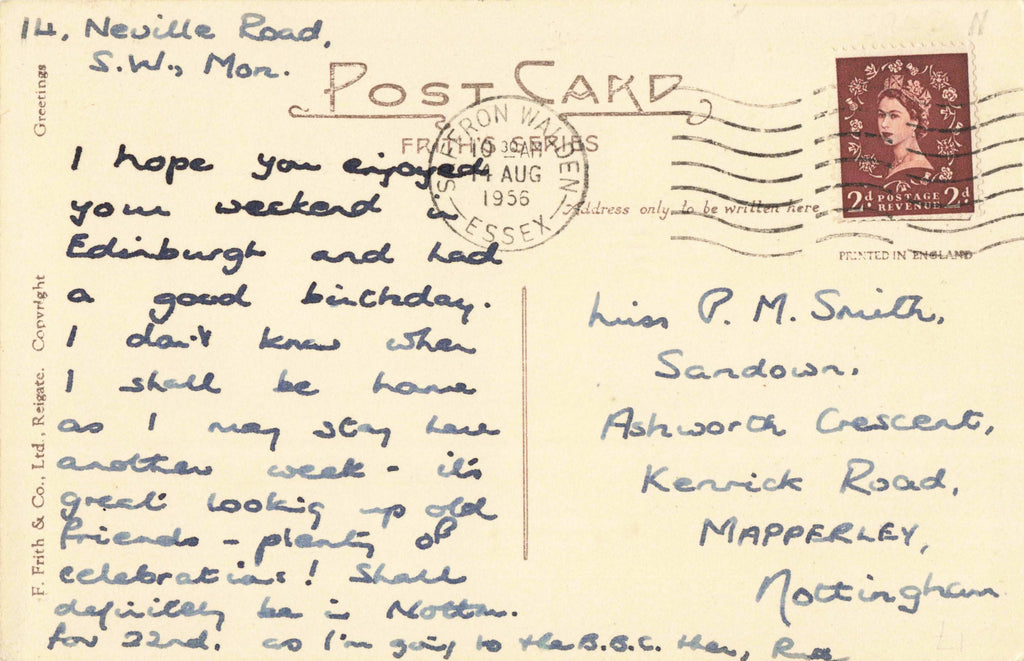 14, Neville Road,
S.W., Mon.
Greetings
POST CARD
FRITH'S SERIES
SAFFRON WALDEN
10 30 AM
14 AUG
1956
ESSEX
2d POSTAGE REVENUE 2d
Address only to be written here
PRINTED IN ENGLAND
F. Frith & Co., Ltd., Reigate. Copyright
I hope you enjoyed
your weekend in
Edinburgh and had
a good birthday.
I don't know when
I shall be home
as I may stay here
another week - it's
great looking up old
friends - plenty of
celebrations! Shall
definitely be in Nottm.
for 22nd. as I'm going to the B.B.C. then,
Miss P. M. Smith,
Sandown,
Ashworth Crescent,
Kenrick Road,
MAPPERLEY,
Nottingham